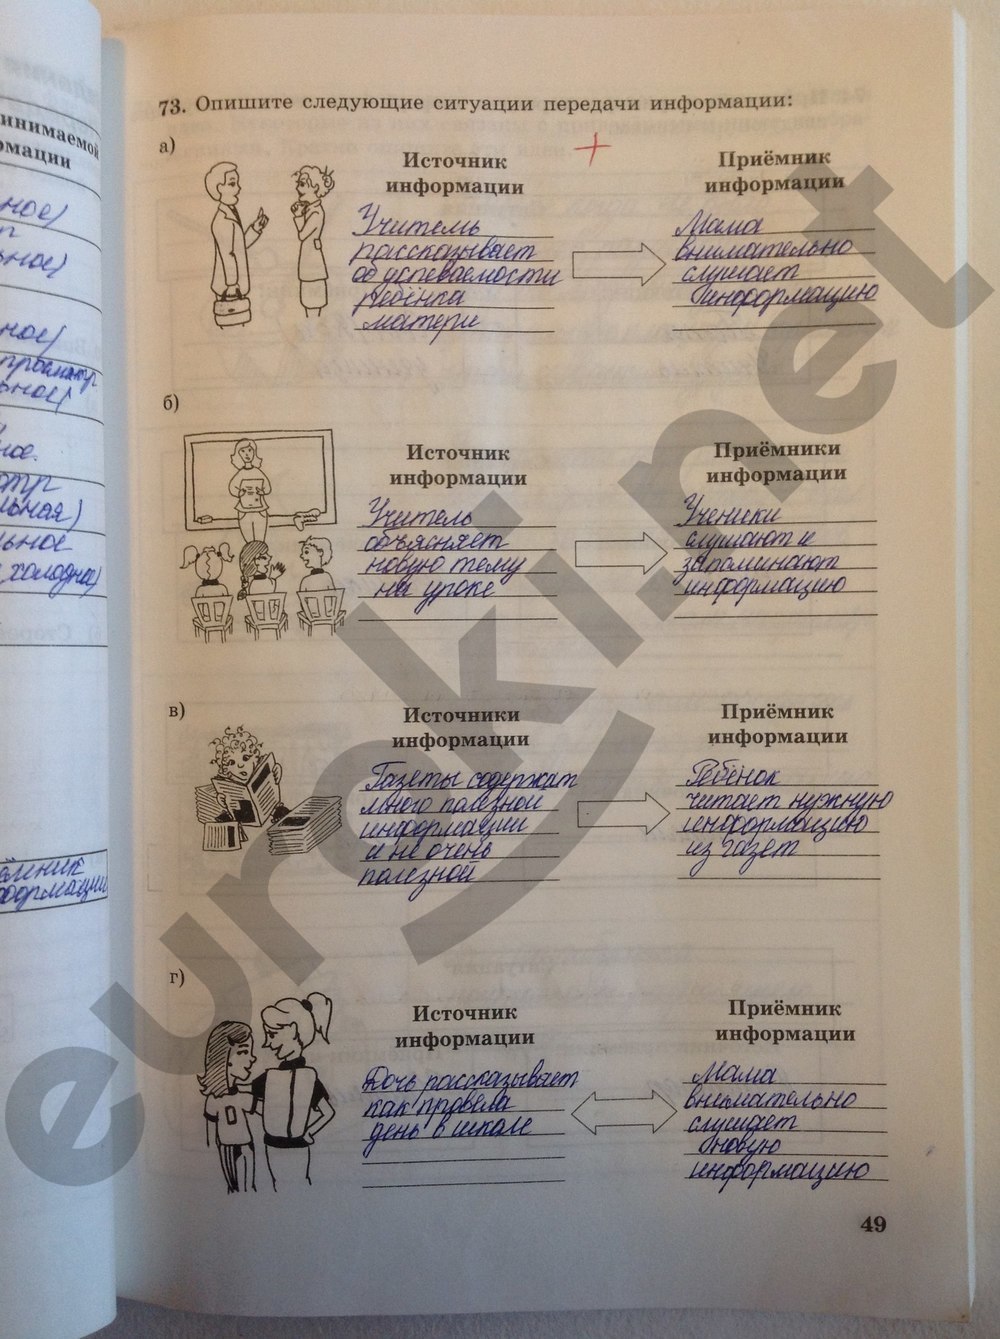 73. Опишите следующие ситуации передачи информации:
а)
Источник
информации
Учитель
рассказывает
об успеваемости
ребёнка
матери
Приёмник
информации
Мама
внимательно
слушает
информацию
б)
Источник
информации
Учитель
объясняет
новую тему
на уроке
Приёмники
информации
Ученики
слушают и
запоминают
информацию
в)
Источники
информации
Газеты содержат
много полезной
информации
и не очень
полезной
Приёмник
информации
Ребёнок
читает нужную
информацию
из газет
г)
Источник
информации
Дочь рассказывает
как провела
день в школе
Приёмник
информации
Мама
внимательно
слушает
новую
информацию
49
инимаемой
рмации
ное)
ьное)
ное)
ное.
льная)
льное
холодна)
ёмник
формации
euroki.net